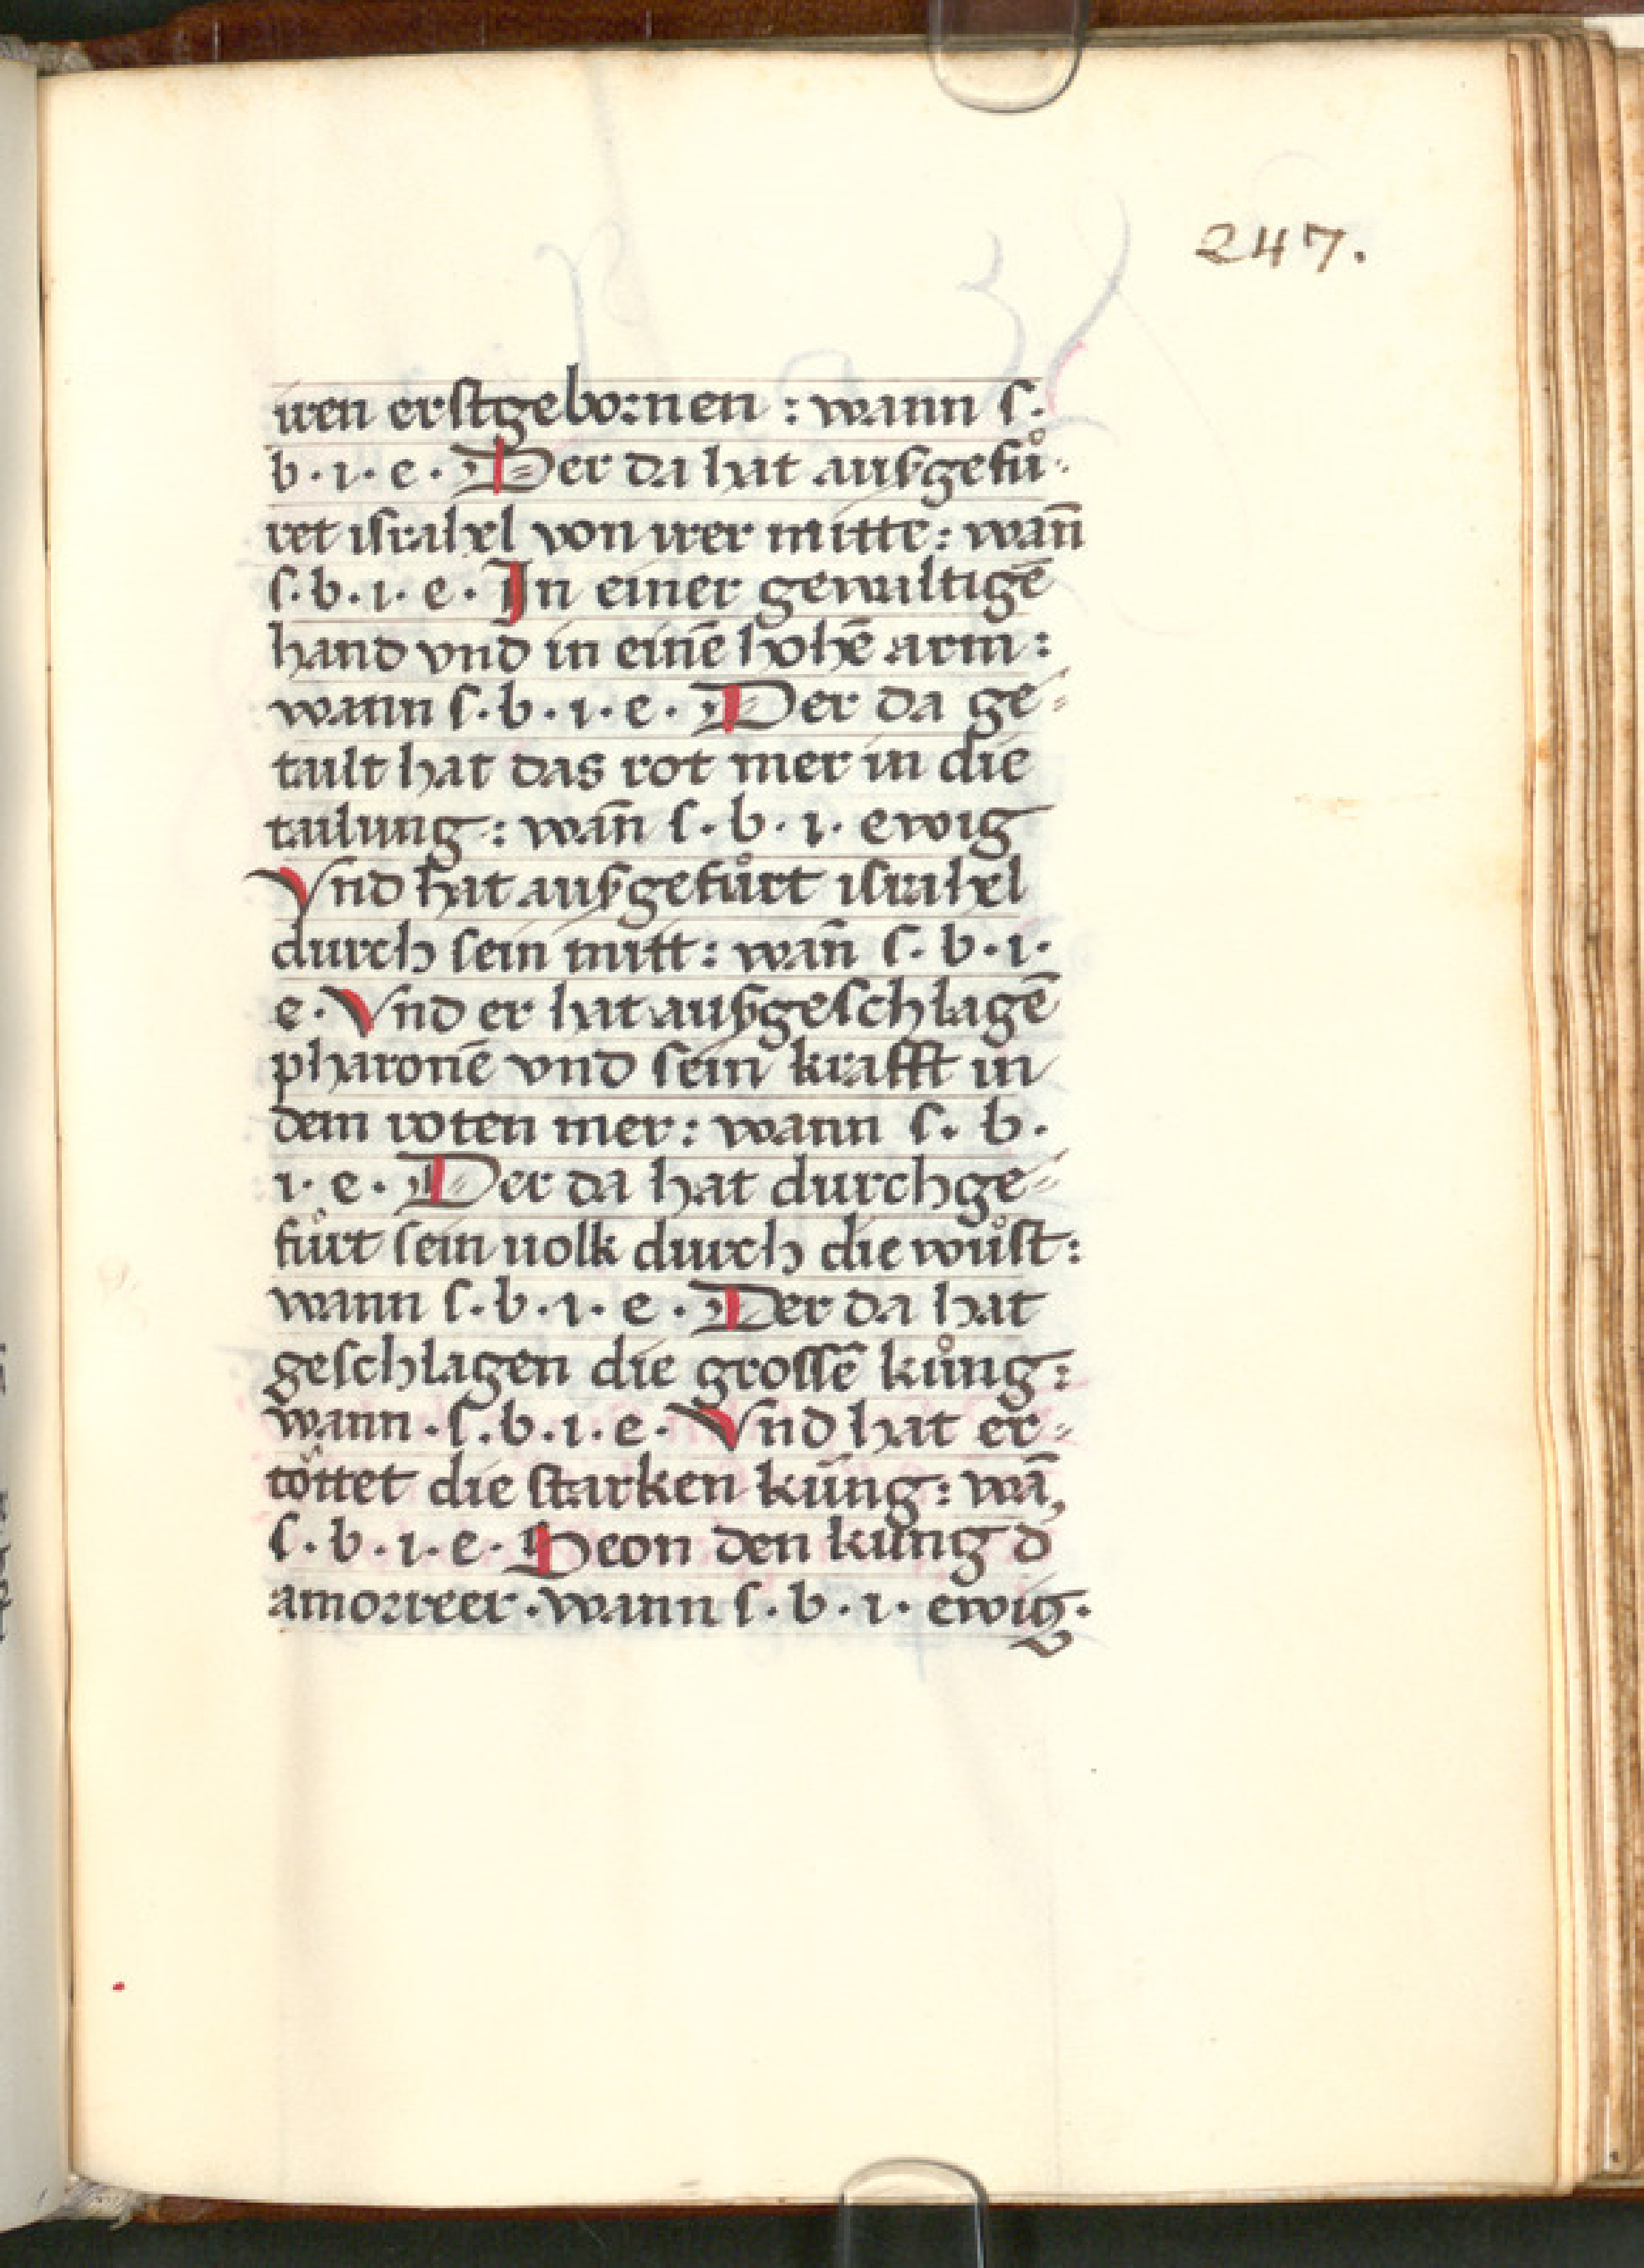 247.
iren erstgebornen : wann s.
b · i · e · Der da hat ausgefuͦ-
ret israhel von irer mitte : wan̄
s · b · i · e · In einer gewaltigē
hand vnd in einē hohē arm :
wann s · b · i · e · Der da ge-
tailt hat das rot mer in die
tailung : wan̄ s · b · i · ewig
Vnd hat ausgefuͦrt israhel
durch sein mitt : wan̄ s · b · i ·
e · Vnd er hat außgeschlagē
pharonē vnd sein krafft in
dem roten mer : wann s · b ·
i · e · Der da hat durchge-
fuͦrt sein uolk durch die wuͦst :
wann s · b · i · e · Der da hat
geschlagen die grossē kuͦng :
wann · s · b · i · e · Vnd hat er-
töttet die starken küng : wā
s · b · i · e · Seon den küng d̄
amorreer · wann s · b · i · ewig ·